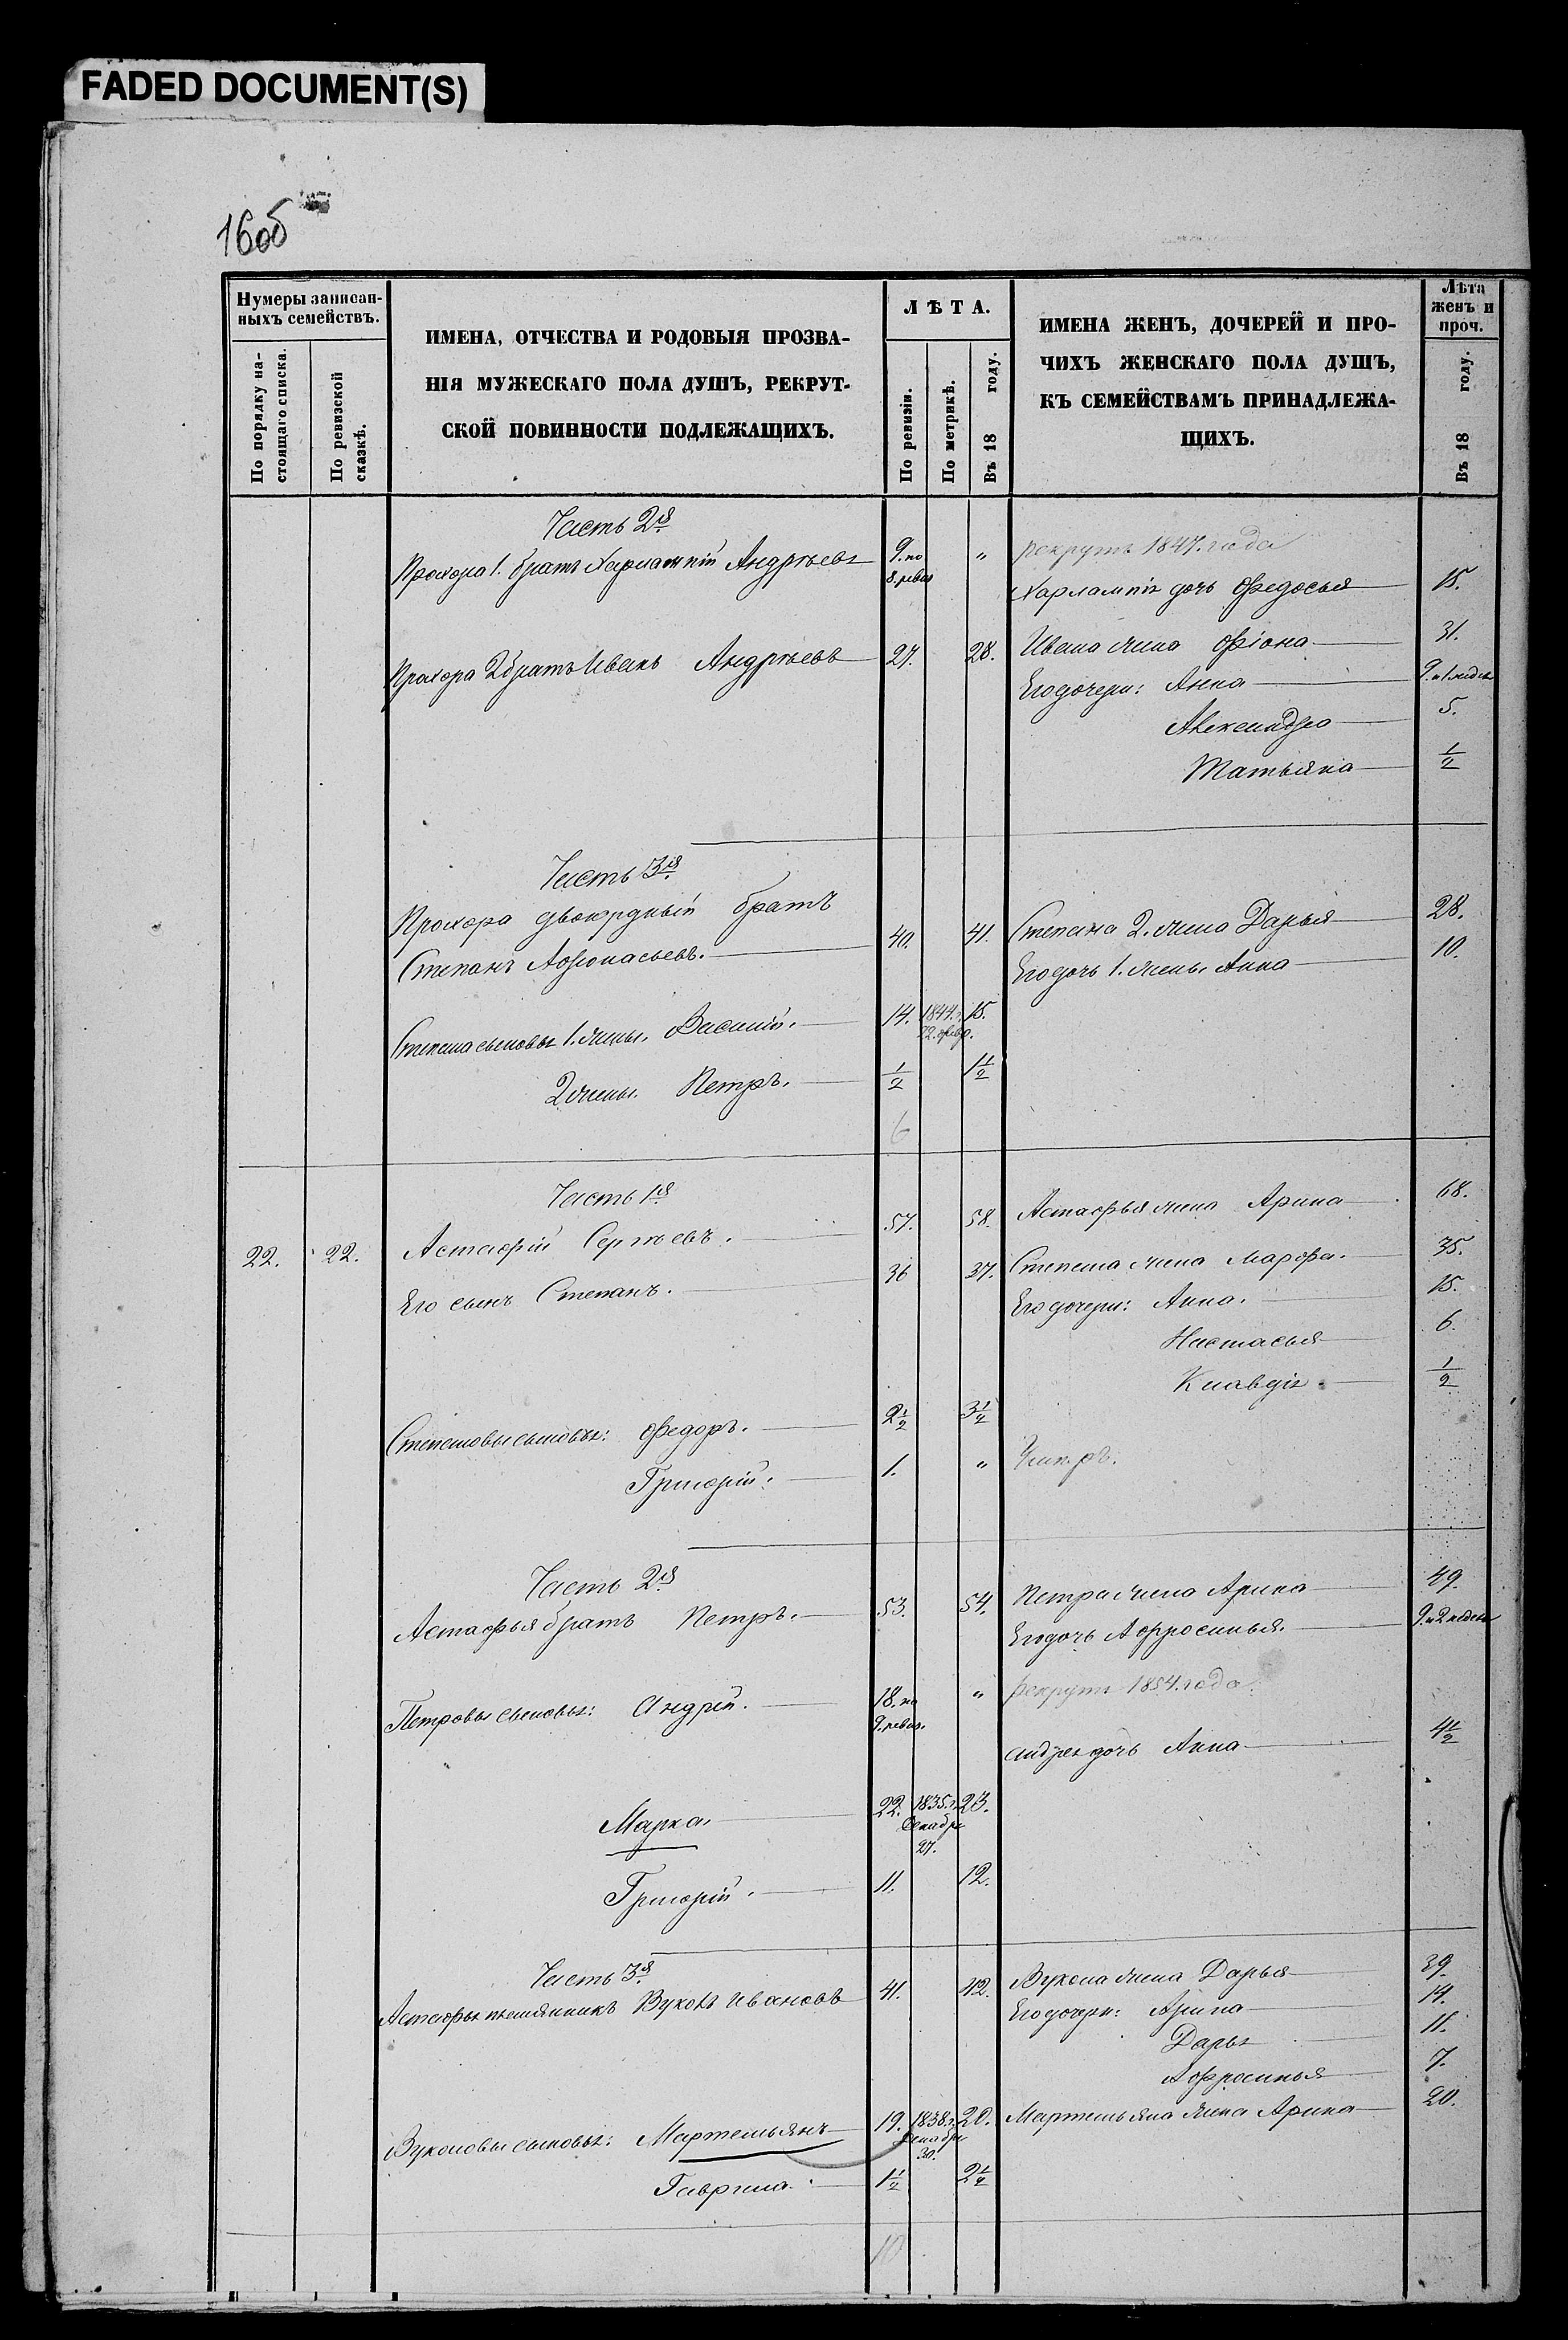 FADED DOCUMENT(S)
16об
Нумеры записан-
ныхъ семействъ.
По порядку на-
стоящаго списка.
По ревизской
сказкѣ.
ИМЕНА, ОТЧЕСТВА И РОДОВЫЯ ПРОЗВА-
НІЯ МУЖЕСКАГО ПОЛА ДУШЪ, РЕКРУТ-
СКОЙ ПОВИННОСТИ ПОДЛЕЖАЩИХЪ.
ЛѢТА.
По ревизіи.
По метрикѣ.
Въ 18 году.
ИМЕНА ЖЕНЪ, ДОЧЕРЕЙ И ПРО-
ЧИХЪ ЖЕНСКАГО ПОЛА ДУШЪ,
КЪ СЕМЕЙСТВАМЪ ПРИНАДЛЕЖА-
ЩИХЪ.
Лѣта
женъ и
проч.
Въ 18 году.
Часть 2я
Прохора 1. братъ Харлампій Андрѣевъ 9. по 8. ревиз „ рекрутъ 1847. года
Харлампія дочь Ѳедосья 15.
Прохора 2 братъ Иванъ Андрѣевъ 27. 28. Ивана жена Фіона 31.
Его дочери: Анна 9. и 1. недел
Александра 5.
Татьяна 1/2
Часть 3я
Прохора двоюрдный братъ
Степанъ Афонасьевъ. 40. 41. Степана 2. жена Дарья 28.
Его дочь 1. жены Анна 10.
Степана сыновья 1. жены. Василій. 14. 1844. г. 22. февр. 15.
2 жены. Петръ. 1/2 1 1/2
6
Часть 1я
22. 22. Астафій Сергѣевъ. 57. 58. Астафья жена Арина 68.
Его сынъ Степанъ. 36 37. Степана жена Марфа. 35.
Его дочери: Анна. 15.
Настасья 6.
Клавдія 1/2
Степановы сыновья: Ѳедоръ. 2 1/2 3 1/2
Григорій. 1. „ Умеръ.
Часть 2я
Астафья братъ Петръ. 53. 54. Петра жена Арина 49.
Его дочь Афросинья. 9. и 2 недели
Петровы сыновья: Андрій. 18. по 9. ревиз. „ рекрутъ 1854. года.
Андрея дочь Анна 4 1/2
Марка. 22. 1835. г. Декабря 27. 23.
Григорій. 11. 12.
Часть 3я
Астафья племянникъ Вуколъ Ивановъ 41. 42. Вукола жена Дарья 39.
Его дочери: Арина 14.
Дарья 11.
Афросинья 7.
Вуколовы сыновья: Мартемьянъ 19. 1838. г. Декабря 30. 20. Мартемьяна жена Арина 20.
Гаврила 1 1/2 2 1/2
10